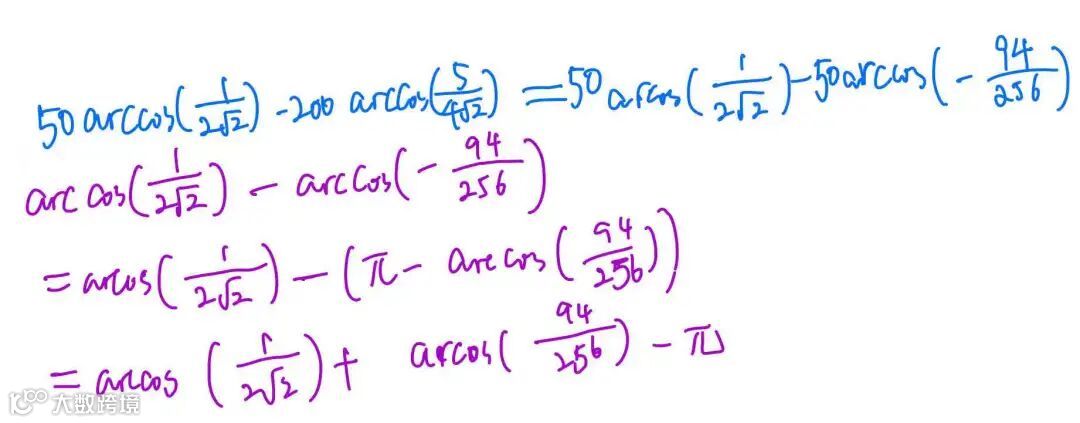 50 arccos(1/(2√2)) - 200 arccos(5/(4√2)) = 50 arccos(1/(2√2)) - 50 arccos(-94/256)
arc cos(1/(2√2)) - arccos(-94/256)
= arcos(1/(2√2)) - (π - arccos(94/256))
= arccos (1/(2√2)) + arcos(94/256) - π
10100 大数跨境